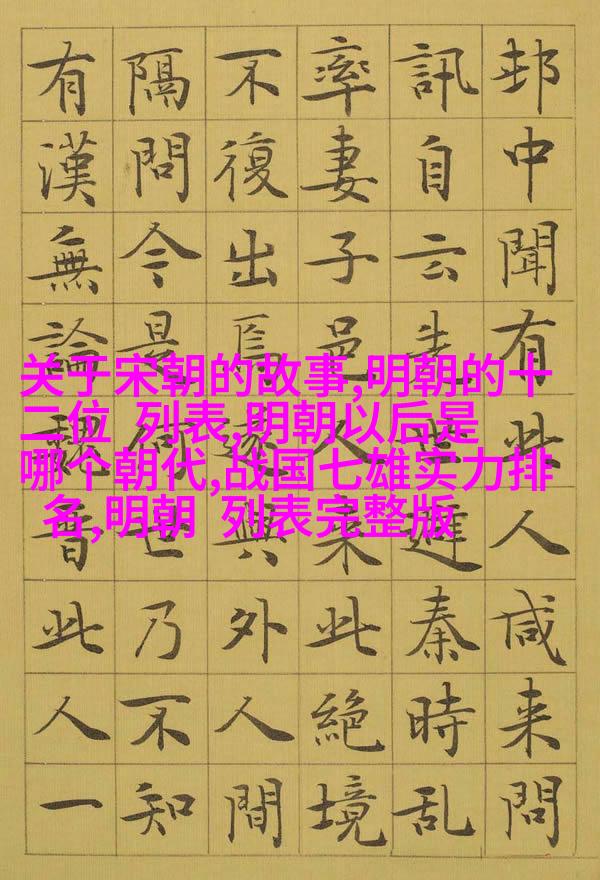 邨中聞有此人咸来問
訊自云先世避秦時乱
率妻子邑人来此絶境
不復出焉遂與外人間
隔問今是何世乃不知
有漢無論魏晉此人一
关于宋朝的故事,明朝的十
二位 列表,明朝以后是
哪个朝代,战国七雄实力排
名,明朝 列表完整版